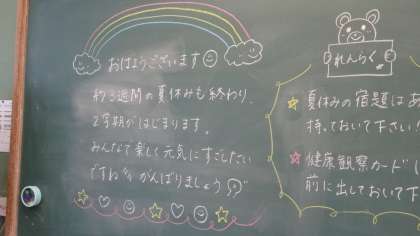 おはようございます
約3週間の夏休みも終わり、
2学期がはじまります。
みんなで楽しく元気にすごしたい
ですね。がんばりましょう
れんらく
夏休みの宿題はあ
持っておいて下さい!
健康観察カードし
前に出しておいて下